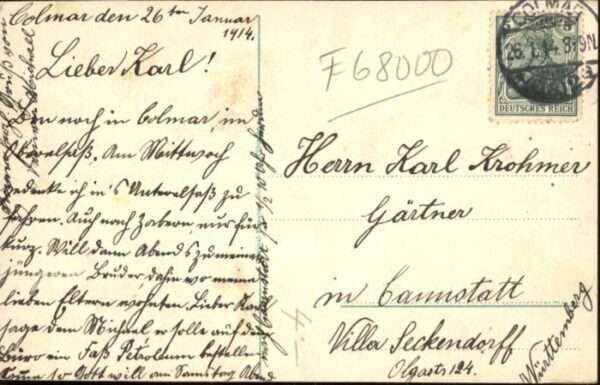 Colmar den 26ten Januar
1914.
Lieber Karl!
Bin noch in Colmar, im
Oberelsaß. Am Mittwoch
gedenke ich in's Unterelsaß zu
fahren. Auch nach Zabern nur für
kurz. Will dann Abends zu meinem
jüngeren Bruder, dahin wo meine
lieben Eltern wohnten. Lieber Karl
sage dem Michael er solle auf dem
Büro ein Faß Petroleum bestellen
so Gott will am Samstag Abend
F68000
COLMAR
26.1.14. 8-9N.
DEUTSCHES REICH
Herrn Karl Krohmer
Gärtner
in Cannstatt
Villa Seckendorff
Olgastr 124.
Württemberg
4.-